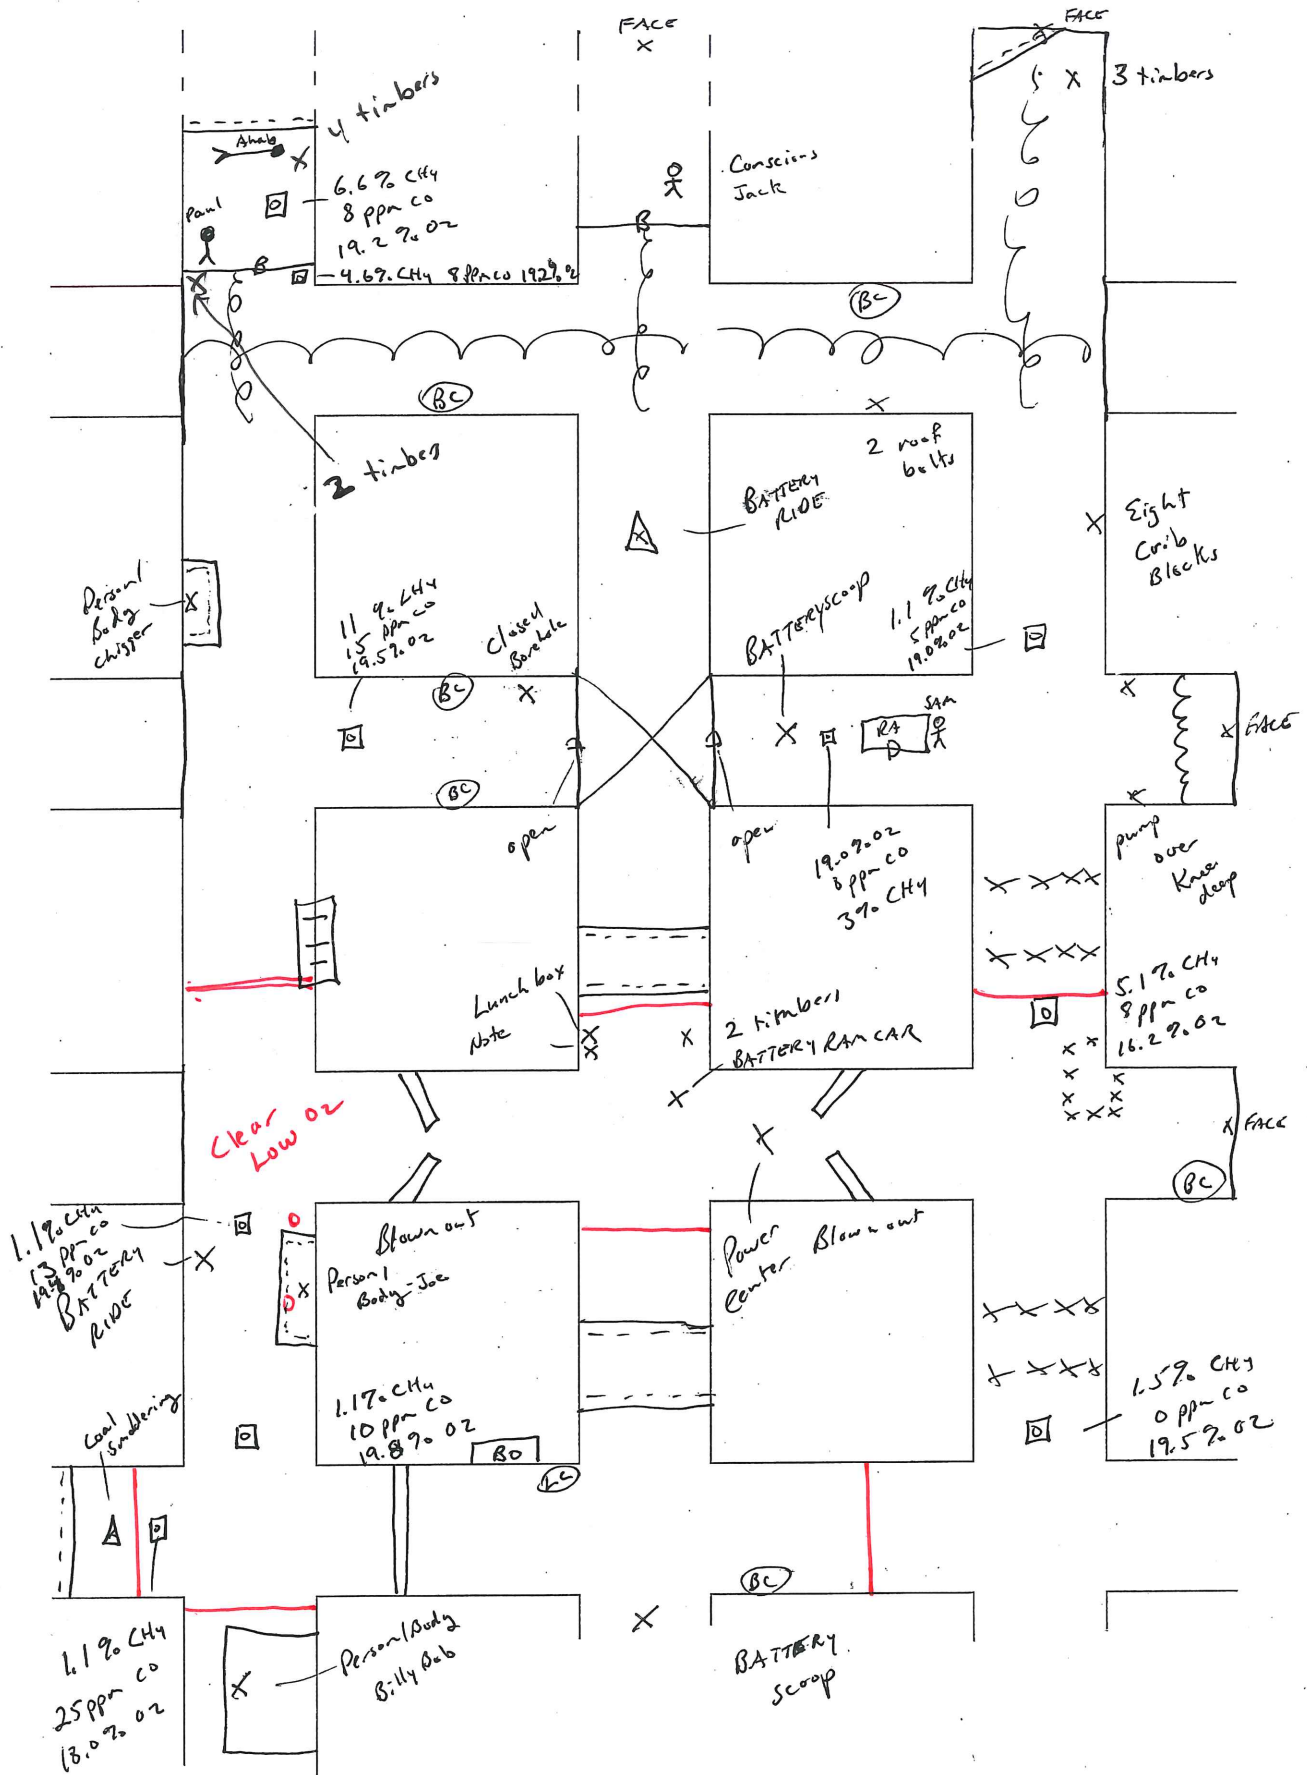 FACE
X
FACE
X
X
3 timbers
4 timbers
Ahab
X
Conscious
Jack
6.6% CH4
8 ppm CO
19.2% O2
Paul
B
B
X
4.6% CH4 8 ppm CO 19.2% O2
BC
BC
X
2 timbers
2 roof
bolts
BATTERY
RIDE
X
X
Eight
Crib
Blocks
Person 1
Body
Chigger
X
11% CH4
15 ppm CO
19.5% O2
Closed
Borehole
X
BATTERY SCOOP
1.1% CH4
5 ppm CO
19.0% O2
BC
X
RA
SAM
X
X
FACE
BC
X
open
open
19.0% O2
8 ppm CO
3% CH4
pump
over
Knee
deep
X X X X
X X X X
Lunch box
Note
X
X
X
2 timbers
BATTERY RAM CAR
X
5.1% CH4
8 ppm CO
16.2% O2
Clear
Low O2
X
X FACE
BC
1.1% CH4
13 ppm CO
BATTERY
RIDE
X
Blown out
Person 1
Body-Joe
X
Power
Center
Blown out
X X X X
X X X X
1.1% CH4
10 ppm CO
19.8% O2
BO
1.5% CH4
0 ppm CO
19.5% O2
Coal
Smoldering
BC
X
1.1% CH4
25 ppm CO
18.0% O2
X
Person 1 Body
Billy Bob
BATTERY
scoop